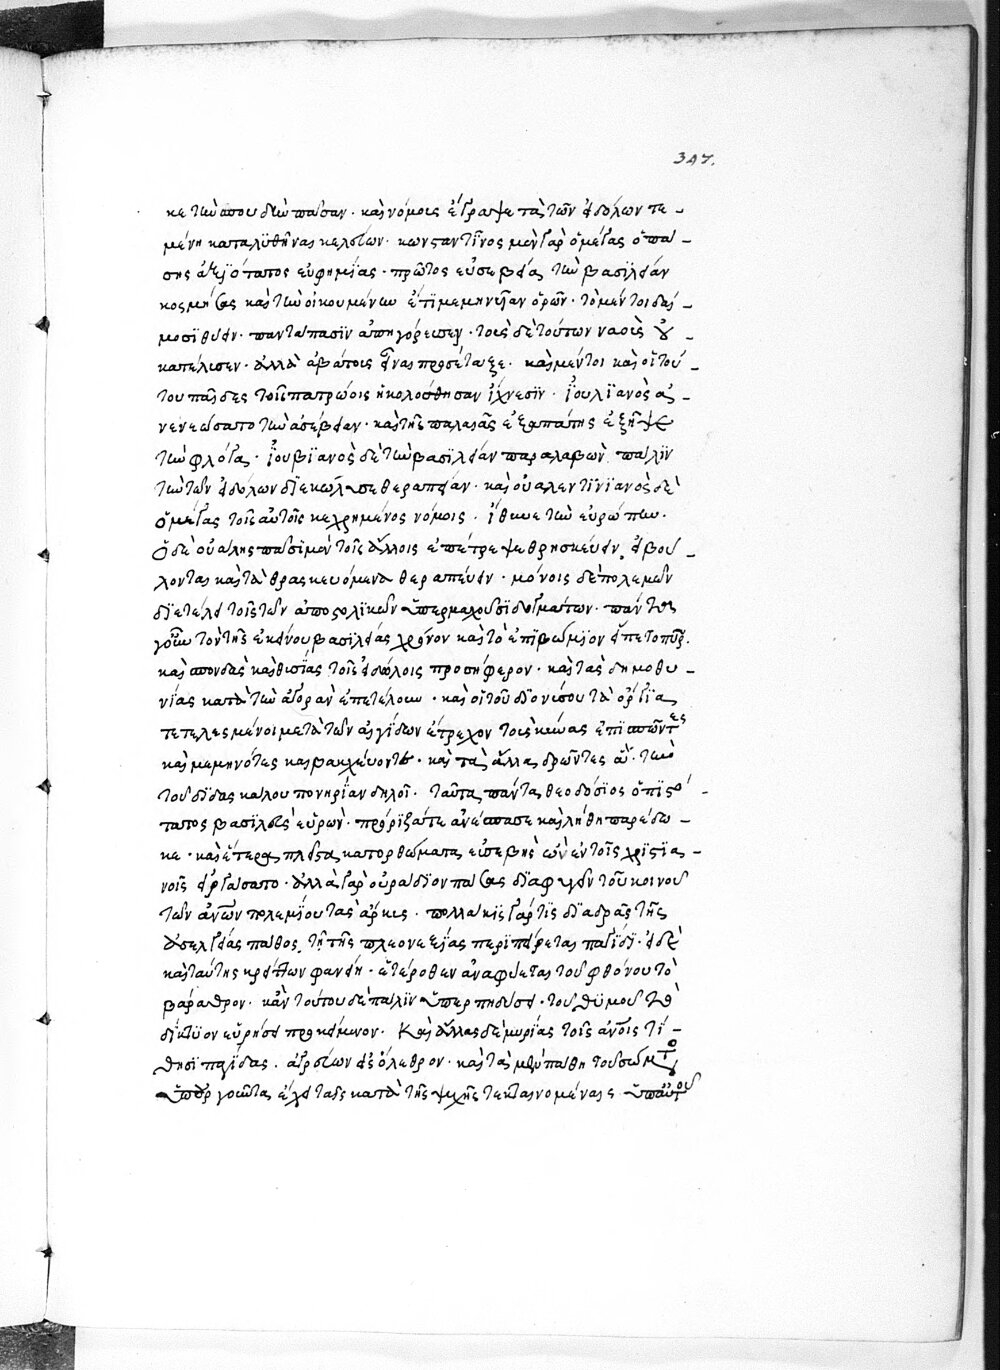 347.
κε τὴν ἀπουσίαν πᾶσαν · καὶ νόμοις ἔγραψε τὰ τῶν εἰδώλων τε-
μένη καταλυθῆναι κελεύων · κωνσταντῖνος μὲν γὰρ ὁ μέγας ὁ πά-
σης ἀξιώτατος εὐφημίας · πρῶτος εὐσεβεία τὴν βασιλείαν
κοσμήσας καὶ τὴν οἰκουμένην ἔτι μεμηνυῖαν ὁρῶν · τὸ μέν τοι δαί-
μοσι θύειν · πανταπασιν ἀπηγόρευσεν · τοὺς δὲ τούτων ναοὺς οὐ
κατέλυσεν · ἀλλὰ ἀβάτους εἶναι προσέταξε · καὶ μέντοι καὶ οἱ τού-
του παῖδες τοῖς πατρώοις ἠκολούθησαν ἴχνεσιν · ἰουλιανὸς ἀ-
νενεώσατο τὴν ἀσέβειαν · καὶ τῆς παλαιᾶς ἐξαπάτης ἐξῆψε
τὴν φλόγα · ἰουβιανὸς δὲ τὴν βασιλείαν παραλαβὼν παλιν
τὴν τῶν εἰδώλων διεκώλυσε θεραπείαν · καὶ οὐαλεντινιανὸς δὲ
ὁ μέγας τοῖς αὐτοῖς κεχρημένος νόμοις · ἴθυνε τὴν εὐρώπην ·
ὁ δὲ οὐάλης πᾶσι μὲν τοῖς ἄλλοις ἐπέτρεψε θρησκεύειν ᾗ βού-
λονται καὶ τὰ θρησκευόμενα θεραπεύειν · μόνοις δὲ πολεμῶν
διετέλει τοῖς τῶν ἀποστολικῶν ὑπερμαχοῦσι δογμάτων · πάντα
γοῦν τὸν τῆς ἐκείνου βασιλείας χρόνον καὶ τὸ ἐπιβώμιον ἥπτετο πῦρ.
καὶ σπονδὰς καὶ θυσίας τοῖς εἰδώλοις προσέφερον · καὶ τὰς δημοθυ-
νίας κατὰ τὴν ἀγορὰν ἐπετέλουν · καὶ οἱ τοῦ διονύσου τὰ ὄργια
τετελεσμένοι μετὰ τῶν αἰγίδων ἔτρεχον τοὺς κύνας ἐπισπῶντες
καὶ μεμηνότες καὶ βακχεύοντες · καὶ τὰ ἄλλα δρῶντες ἃ τὴν
τοῦ διδασκάλου πονηρίαν δηλοῖ · ταῦτα πάντα θεοδόσιος ὁ πιστό-
τατος βασιλεὺς εὑρὼν · πρόρριζά τε ἀνέσπασε καὶ λήθη παρέδω-
κε · καὶ ἕτερα πλεῖστα κατορθώματα εὐσεβὴς ὢν ἐν τοῖς χριστια-
νοῖς εἰργάσατο · ἀλλὰ γὰρ οὐ ῥάδιον πάσας διαφυγεῖν τοῦ κοινοῦ
τῶν ἀνων πολεμίου τὰς ἄρκυς · πολλάκις γάρ τις διαδρὰς τῆς
ἀσελγείας πάθος τῇ τῆς πλεονεξίας περιπείρεται παγίδι · εἰ δὲ
καὶ ταύτης κρείττων φανείη · ἑτέρωθεν ἀναφύεται τοῦ φθόνου τὸ
βάραθρον · κἂν τοῦτου δὲ πάλιν ὑπερπηδήσει · τοῦ θυμοῦ τὸ
δίκτυον εὑρήσει προκείμενον · Καὶ ἄλλας δὲ μυρίας τοῖς ἀνοις τί-
θησι παγίδας · ἀγρεύων εἰς ὄλεθρον · καὶ τὰ μὲν πάθη τοῦ σώματος
ὑπουργοῦντα ἔχει ταῖς κατὰ τῆς ψυχῆς τεκταινομέναις ὑπ' αὐτοῦ